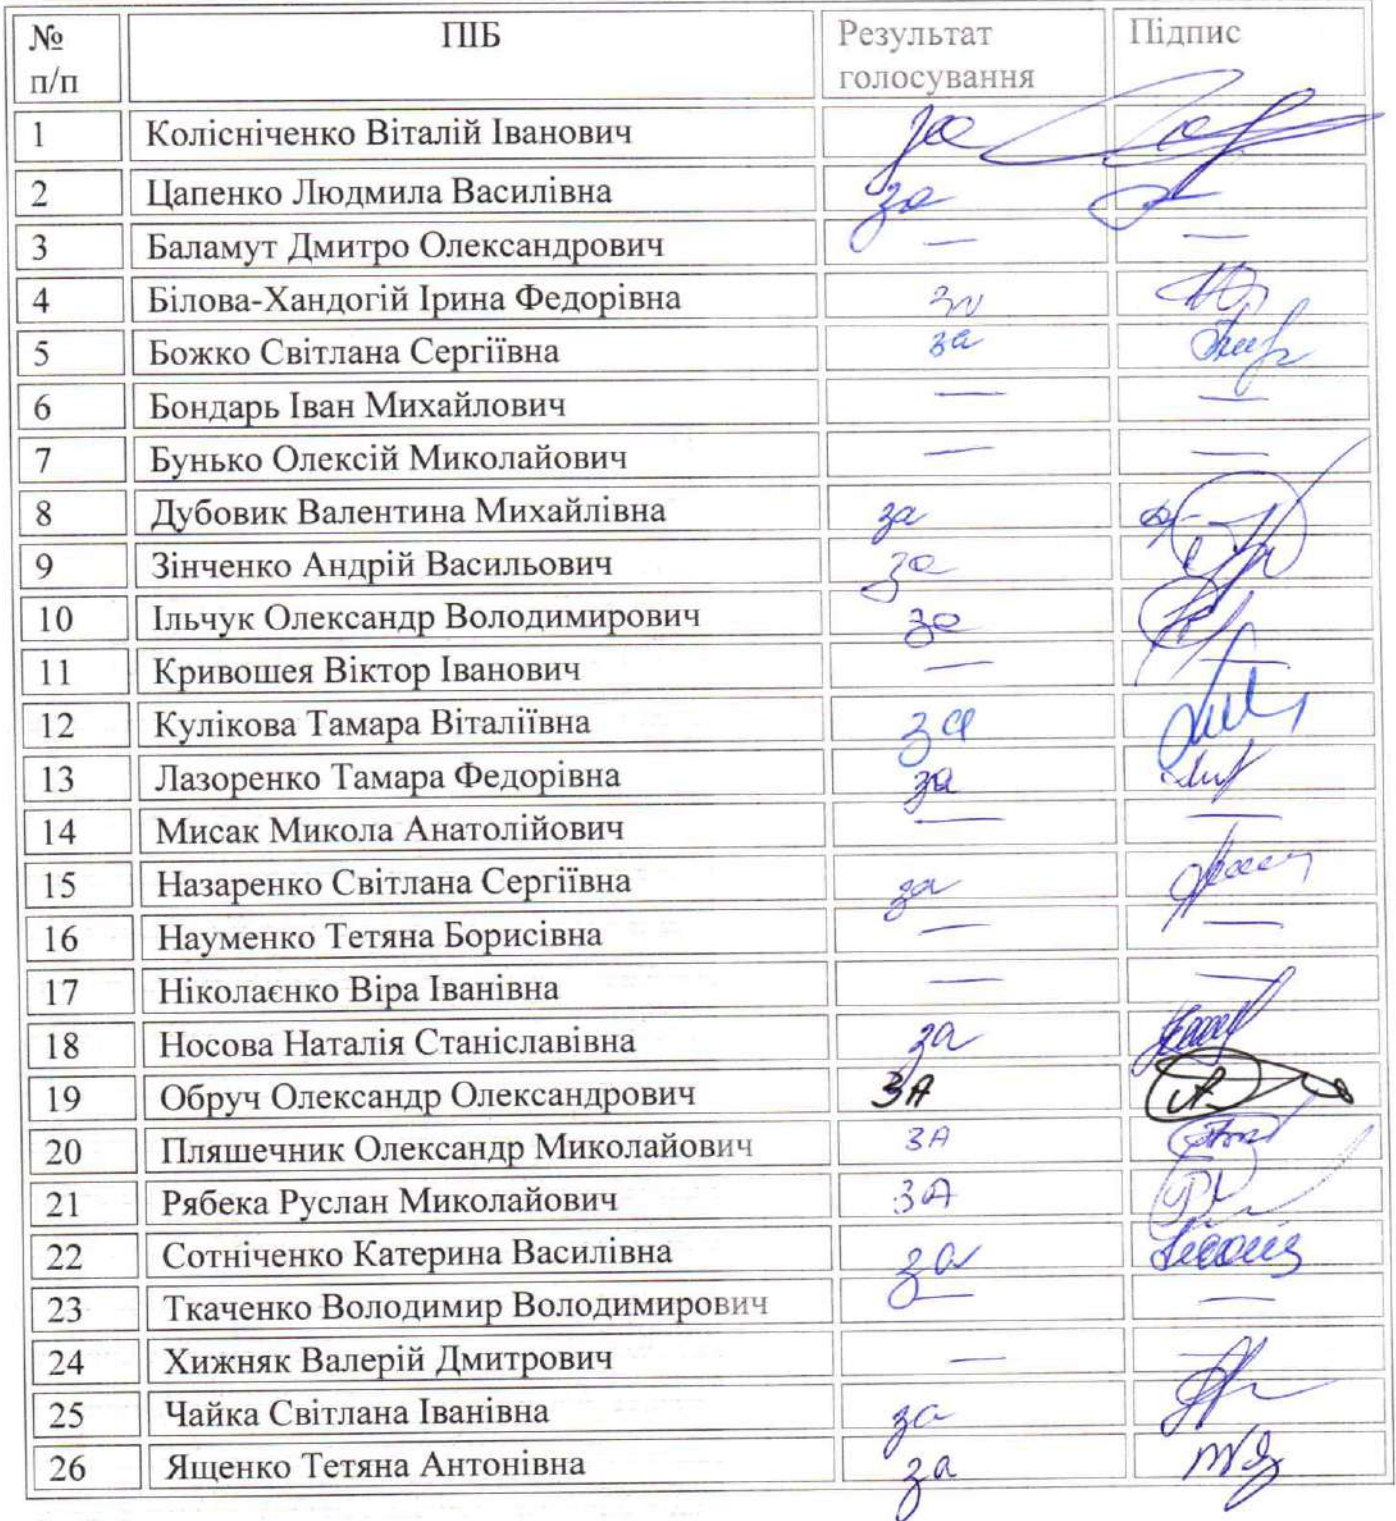 № п/п ПІБ Результат голосування Підпис
1 Колісніченко Віталій Іванович за
2 Цапенко Людмила Василівна за
3 Баламут Дмитро Олександрович — —
4 Білова-Хандогій Ірина Федорівна за
5 Божко Світлана Сергіївна за
6 Бондарь Іван Михайлович — —
7 Бунько Олексій Миколайович — —
8 Дубовик Валентина Михайлівна за
9 Зінченко Андрій Васильович за
10 Ільчук Олександр Володимирович за
11 Кривошея Віктор Іванович — —
12 Кулікова Тамара Віталіївна за
13 Лазоренко Тамара Федорівна за
14 Мисак Микола Анатолійович — —
15 Назаренко Світлана Сергіївна за
16 Науменко Тетяна Борисівна — —
17 Ніколаєнко Віра Іванівна — —
18 Носова Наталія Станіславівна за
19 Обруч Олександр Олександрович ЗА
20 Пляшечник Олександр Миколайович ЗА
21 Рябека Руслан Миколайович ЗА
22 Сотніченко Катерина Василівна за
23 Ткаченко Володимир Володимирович — —
24 Хижняк Валерій Дмитрович — —
25 Чайка Світлана Іванівна за
26 Ященко Тетяна Антонівна за